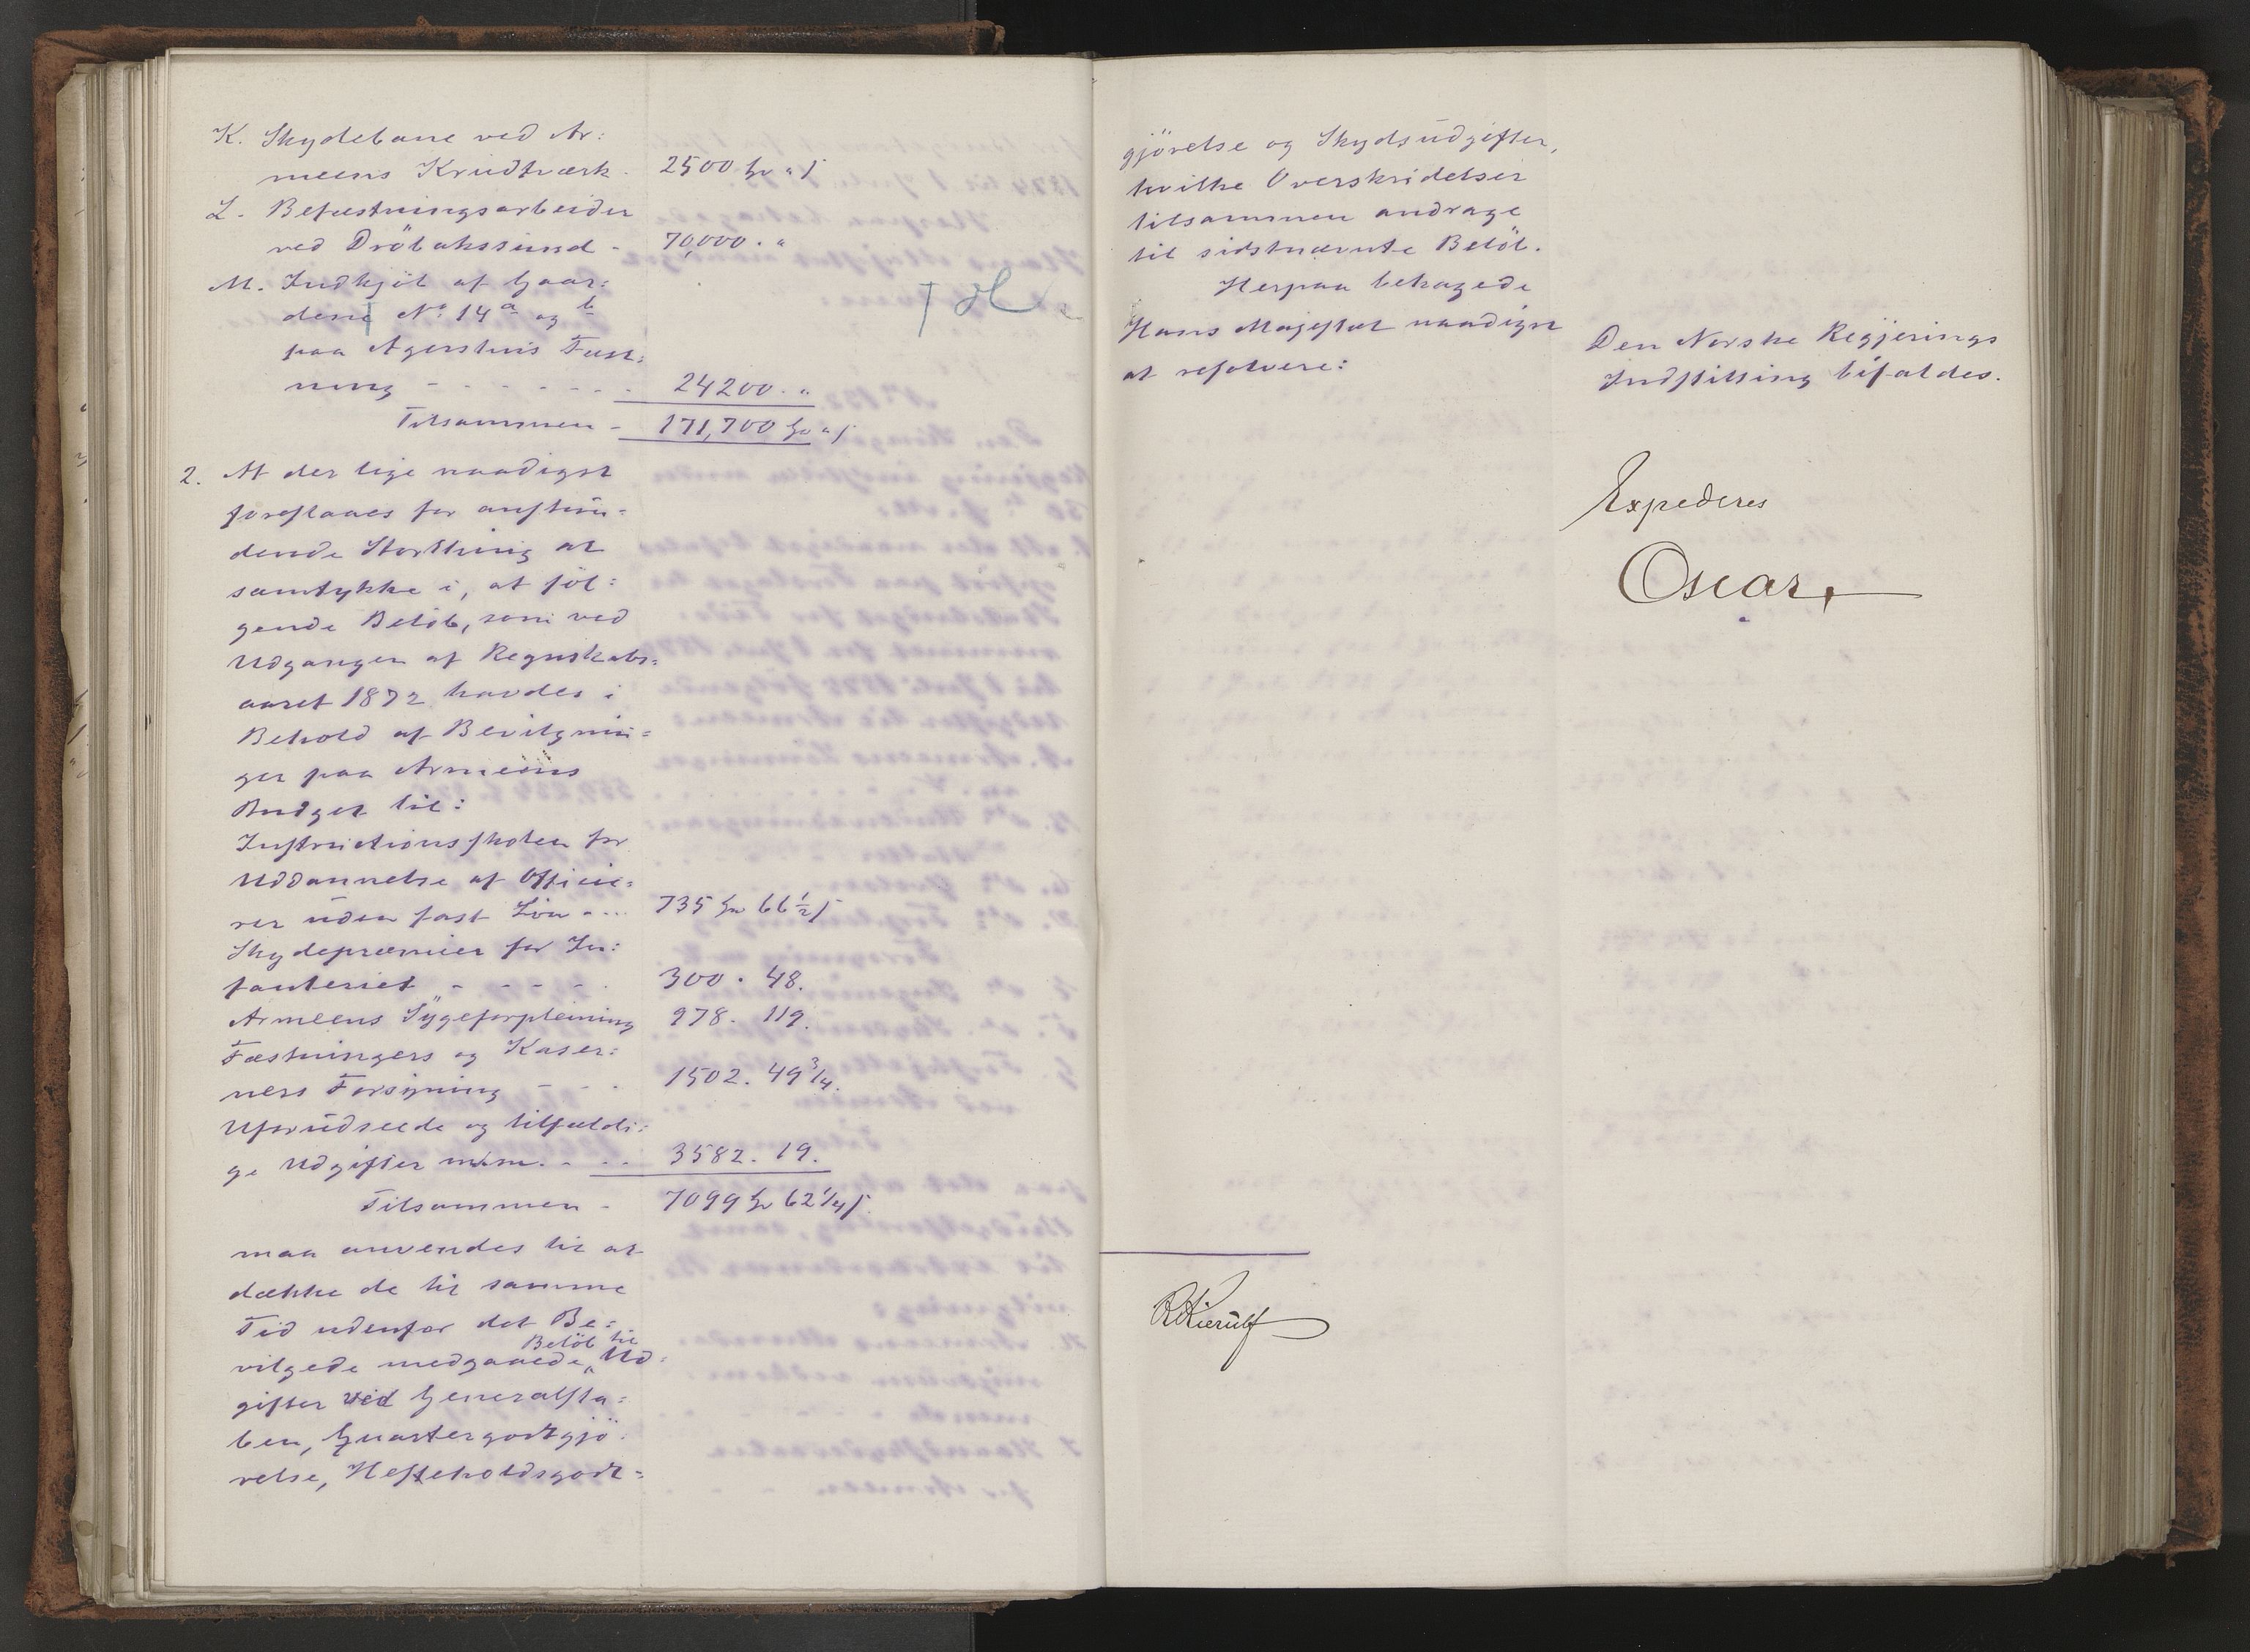 K. Skydebane ved Ar:
meens Krudtværk. 2500 Sp „ s
L. Befæstningsarbeider
ved Dröbaksund - 70,000. „
M. Indkjöb af Gaar:
dene No 14a og b
paa Agershuus Fæst:
ning - - - - - - 24200. „
Tilsammen - 171,700 Sp „ s
2. At der lige naadigst
foreslaaes for anstun-
dende Storthing at
samtykke i, at föl:
gende Belöb, som ved
Udgangen af Regnskabs=
aaret 1872 havdes i
Behold af Bevilgnin=
ger paa Armeens
Budget til:
Instructionsskolen for
Uddannelse af Officie:
rer uden fast Lön - .. 735 Sp 66 1/2 s
Skydepræmier for In:
fanteriet - - - - . 300 . 48.
Armeens Sygeforpleining 978. 119.
Fæstningers og Kaser:
ners Forsyning - - . 1502. 49 3/4.
Uforudseede og tilfældi:
ge Udgifter m.m. - .. 3582. 19.
Tilsammen - 7099 Sp 62 1/4 s.
maa anvendes til at
dække de til samme
Tid udenfor det Be=
vilgede medgaaede Belöb til Ud=
gifter ved Generalsta=
ben, Quartergodtgjö:
relse, Hesteholdsgodt=
gjörelse og Skydsudgifter,
hvilke Overskridelser
tilsammen andrage
til sidstnævnte Belöb.
Herpaa behagede
Hans Majestæt naadigst
at resolvere:
Den Norske Regjerings
Indstilling bifaldes.
Expederes
Oscar
RKierulf